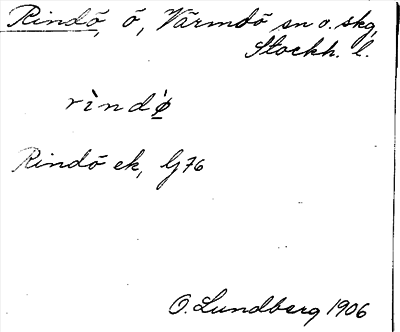 Rindö, ö, Värmdö sn o. skg,
Stockh. l.
rìndø̀
Rindö ek, G76
O. Lundberg 1906